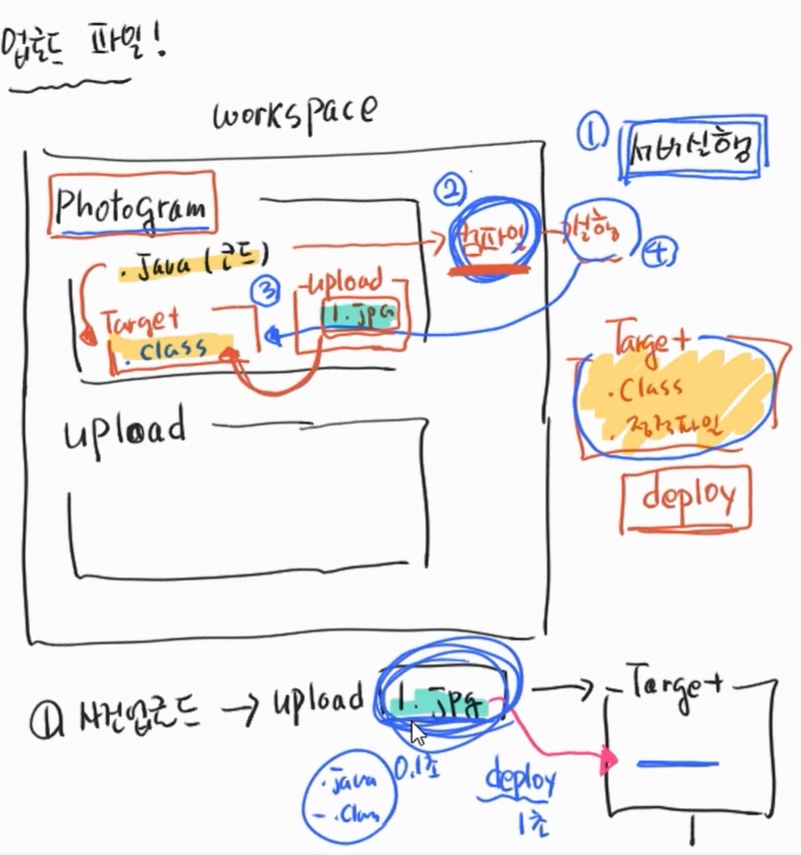 업로드 파일!
workspace
① 서버실행
Photogram
② 컴파일
실행
④
.Java (코드)
③
upload
1.jpg
Target
.class
Target
.Class
.정적파일
upload
deploy
① 사진업로드 → upload 1.jpg → Target
0.1초
.java
.Class
deploy
1초